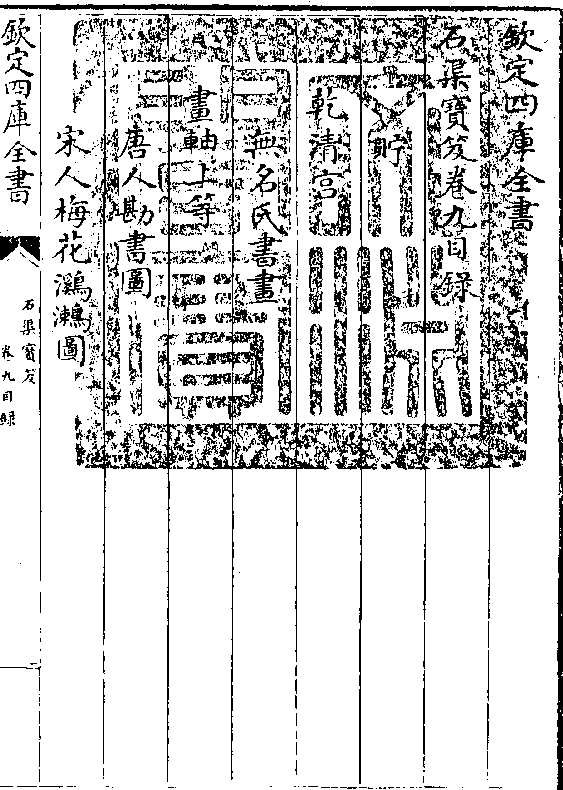 欽定四庫全書
石渠寶笈卷九目録
貯
乾清宮
無名氏書畫
畫軸上等
唐人勘書圖
宋人梅花鸂鷘圖
欽定四庫全書
石渠寶笈
卷九目録
一